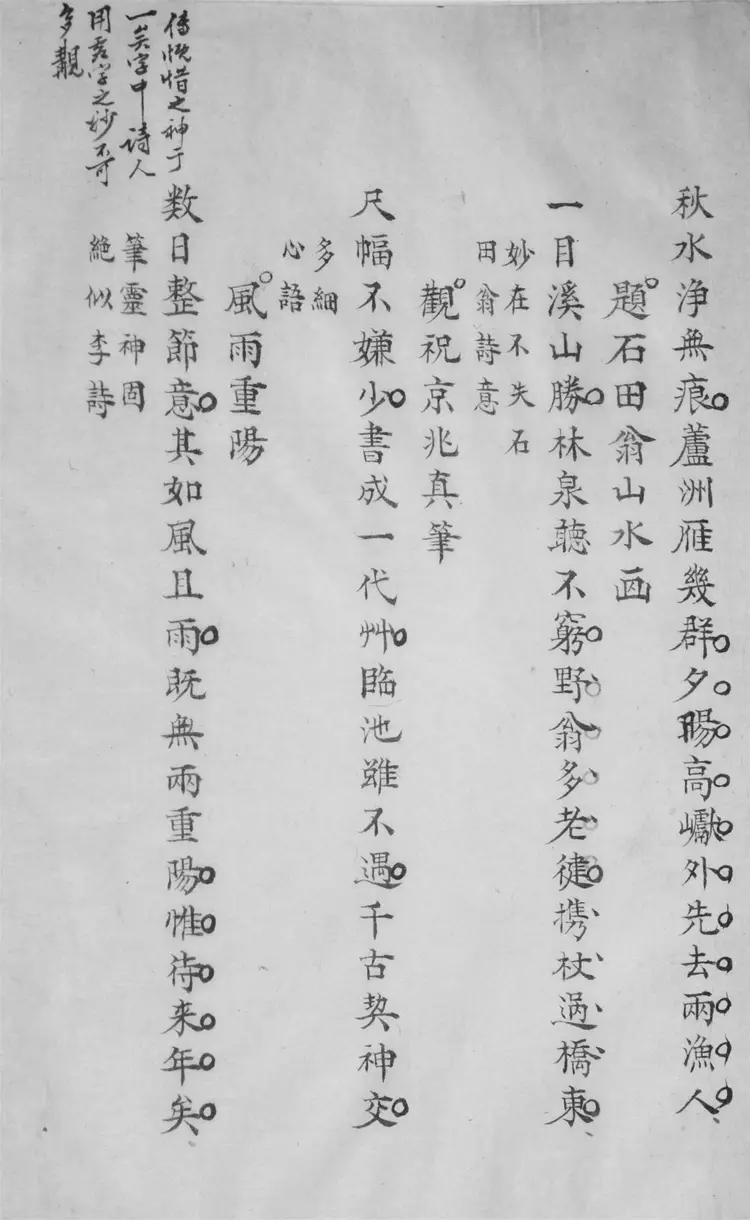 秋水浄無痕蘆洲雁幾群夕陽高巘外先去兩漁人
題石田翁山水画
一目溪山勝林泉聴不窮野翁多老健携杖過橋東
妙在不失石
田翁詩意
觀祝京兆真筆
尺幅不嫌少書成一代艸臨池雖不遇千古契神交
多細
心語
風雨重陽
数日整節意其如風且雨既無兩重陽惟待来年矣
筆靈神固
絶似李詩
傳悦惜之神于
一矣字中詩人
用虚字之妙不可
多覯